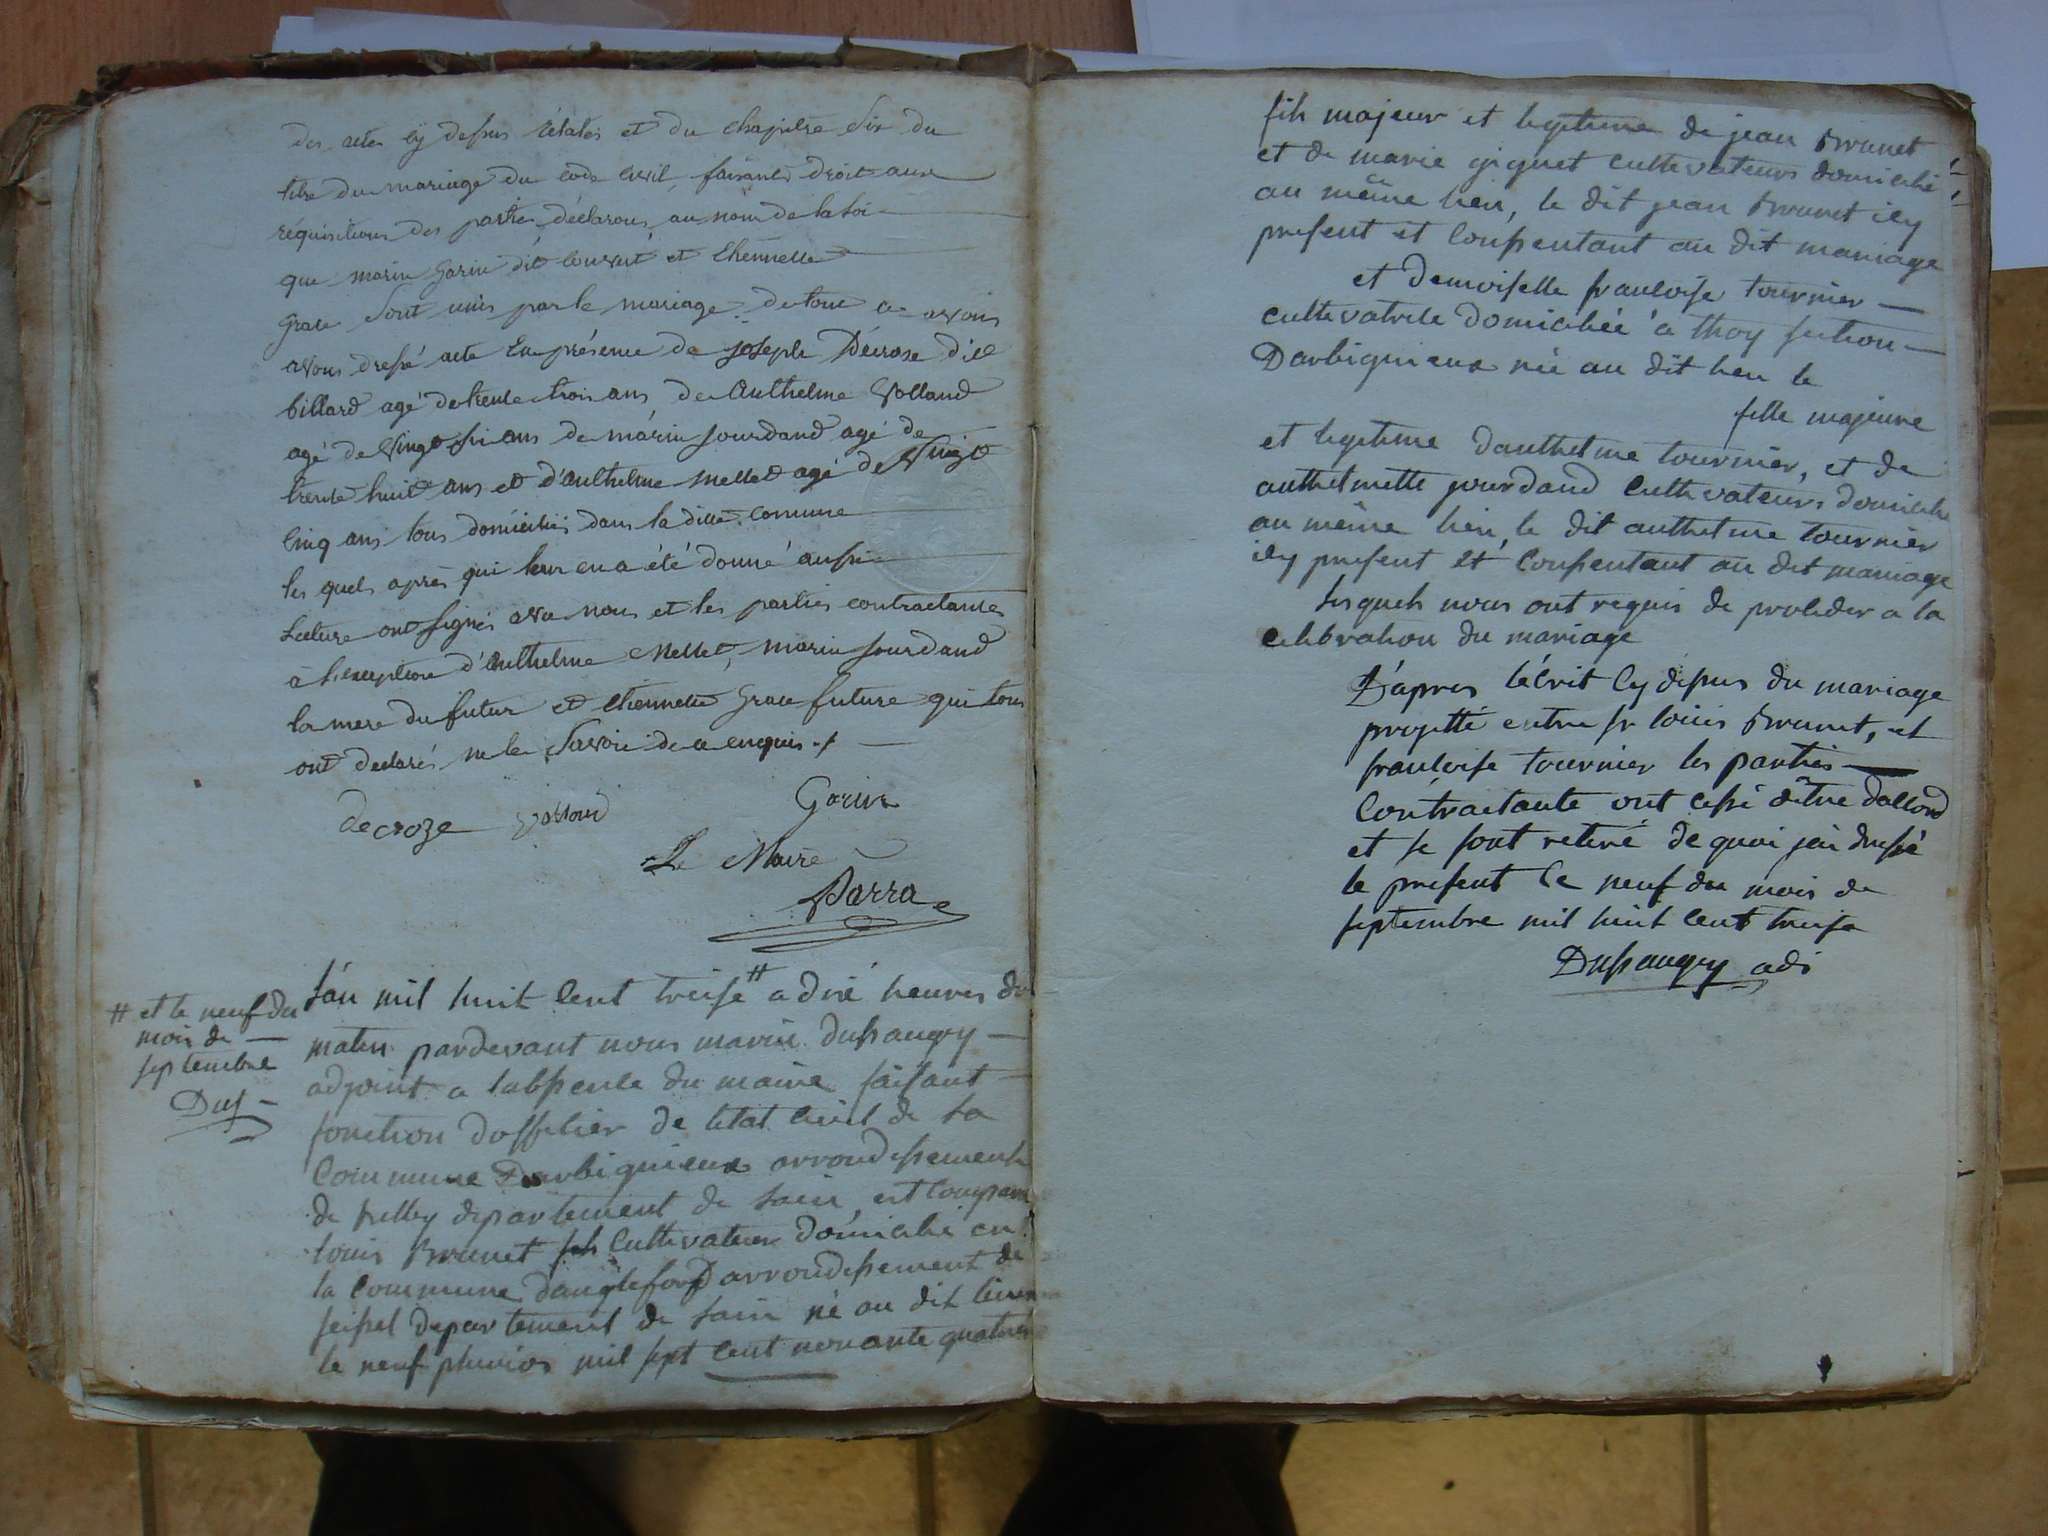 des actes cy dessus rélatés et du chapitre six du
titre du mariage du code civil, faisants droit aux
réquisitions des parties, déclarons au nom de la loi
que marin Garin dit couvert et Ethennette
Grace sont unis par le mariage. de tout ce avons
avons dressé acte En présence de joseph Décrose dit
billard agé de trente trois ans, de Anthelme Volland
agé de vingt six ans de marin jourdand agé de
trente huit ans et d'anthelme mellet agé de vingt
cinq ans tous domiciliés dans la ditte comune
les quels après qui leur en a été donné aussi
Lecture ont signés avec nous et les parties contractantes
à l'exception d'Anthelme Mellet, marin jourdand
la mere du futur et ethennette Grace future qui tous
ont declarés ne le savoir de ce enquis ./.
decroze volland Garin
Le Maire
Parra
L'an mil huit cent treise # a dixé heures du
# et le neuf du
mois de
septembre
Dus
matin pardevant nous marin dussaugey
adjoint a labsence du maire faisant
fonction dofficier de letat civil de la
Commune Darbignieux arrondissement
de belley departement de lain, est comparu
louis Brunet fils cultivateur domicilié en
la commune dangleford arrondissement de
seissel departement de lain né au dit lieu
le neuf pluvios mil sept cent nonante quatre
fils majeur et legitime de jean Brunet
et de marie giguet cultivateurs domicilié
au même lieu, le dit jean Brunet icy
present et consentant au dit mariage
et demoiselle francoise tournier
cultivatrice domiciliée a thoy section
Darbignieux née au dit lieu le
fille majeure
et legitime danthelme tournier, et de
anthelmette jourdand cultivateurs domicilié
au même lieu, le dit anthelme tournier
icy present et consentant au dit mariage
Lesquels nous ont requis de proceder a la
celebration du mariage
D'apres lécrit cy dessus du mariage
projetté entre sr louis Brunet, et
francoise tournier les parties
Contractante ont cessé dêtre daccord
et se sont retiré de quoi jai dressé
le present le neuf du mois de
septembre mil huit cent treise
Dussaugey adj